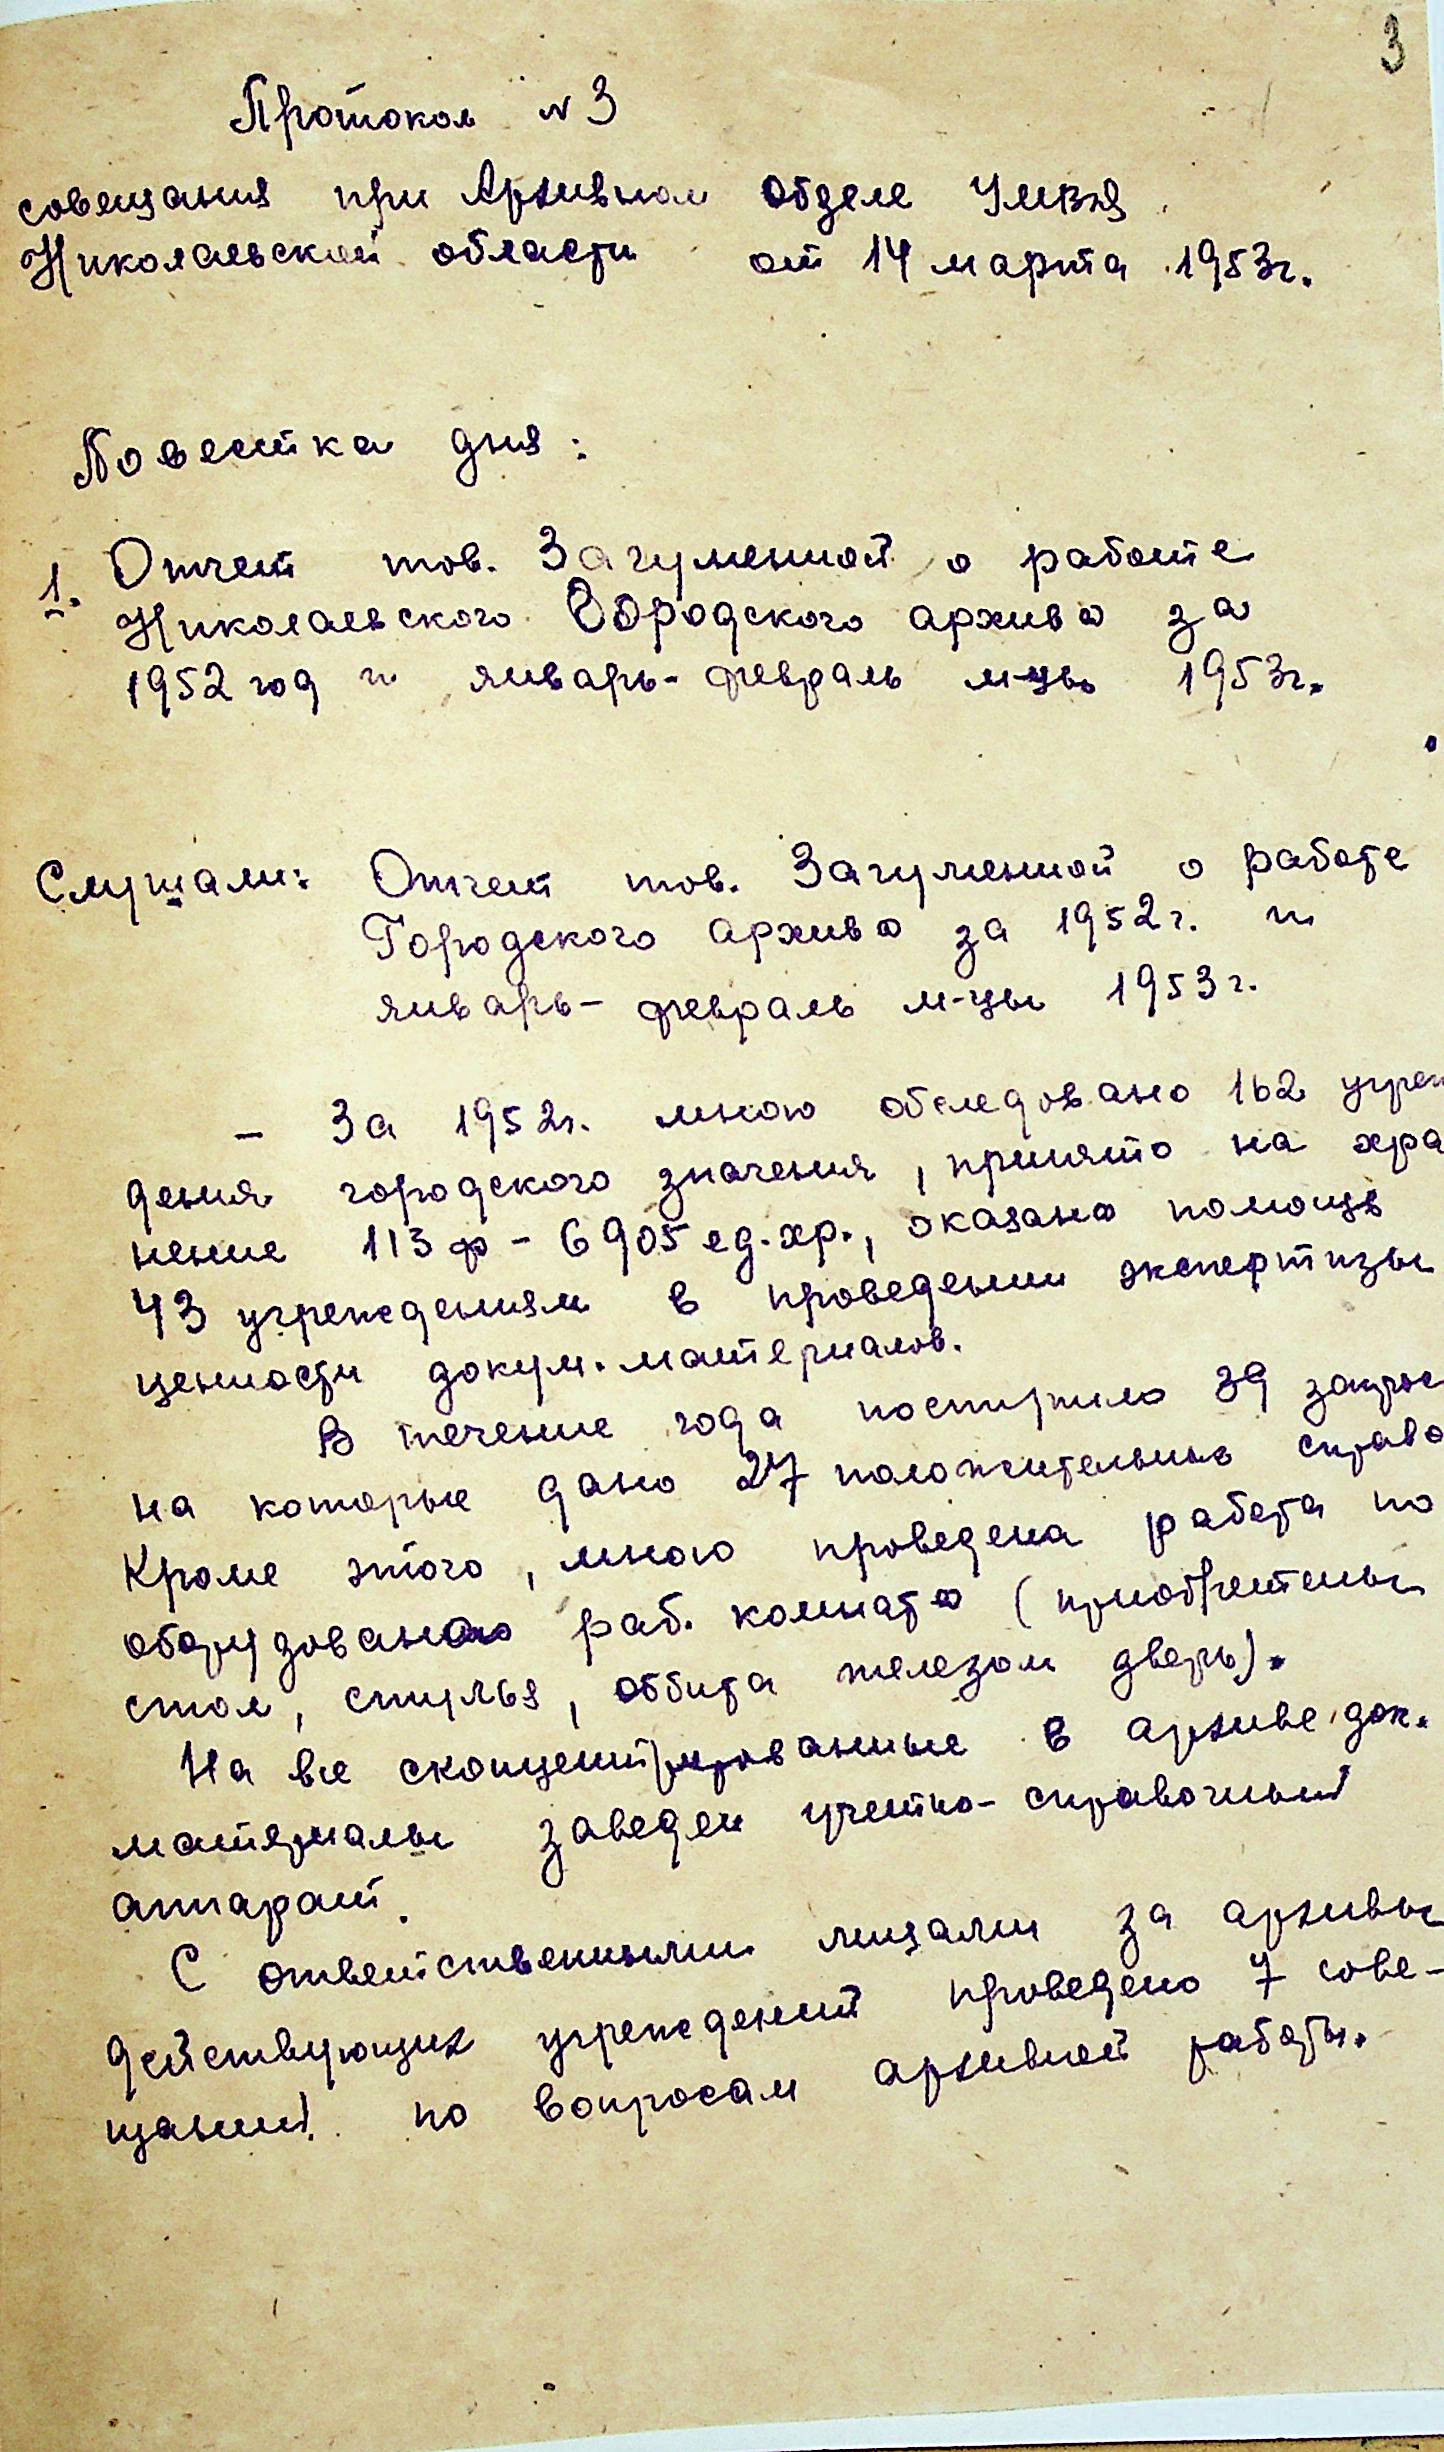 3
Протокол № 3
совещания при Архивном отделе УМВД
Николаевской области от 14 марта 1953г.
Повестка дня:
1. Отчет тов. Загуменной о работе
Николаевского Городского архива за
1952 год и январь-февраль м-цы 1953г.
Слушали: Отчет тов. Загуменной о работе
Городского архива за 1952г. и
январь-февраль м-цы 1953г.
- За 1952г. мною обследовано 162 учреж
дения городского значения, принято на хра
нение 113 ф - 6905 ед.хр., оказана помощь
43 учреждениям в проведении экспертизы
ценности докум. материалов.
В течение года поступило 39
на которые дано 27 положительных справо
Кроме этого, мною проведена работа по
оборудованию раб. комната (приобретены
стол, стулья, оббита железом дверь).
На все сконцентрированные в архиве док.
материалы заведен учетно-справочный
аппарат.
С ответственными лицами за архивы
действующих учреждений проведено 7 сове-
щаний по вопросам архивной работы.